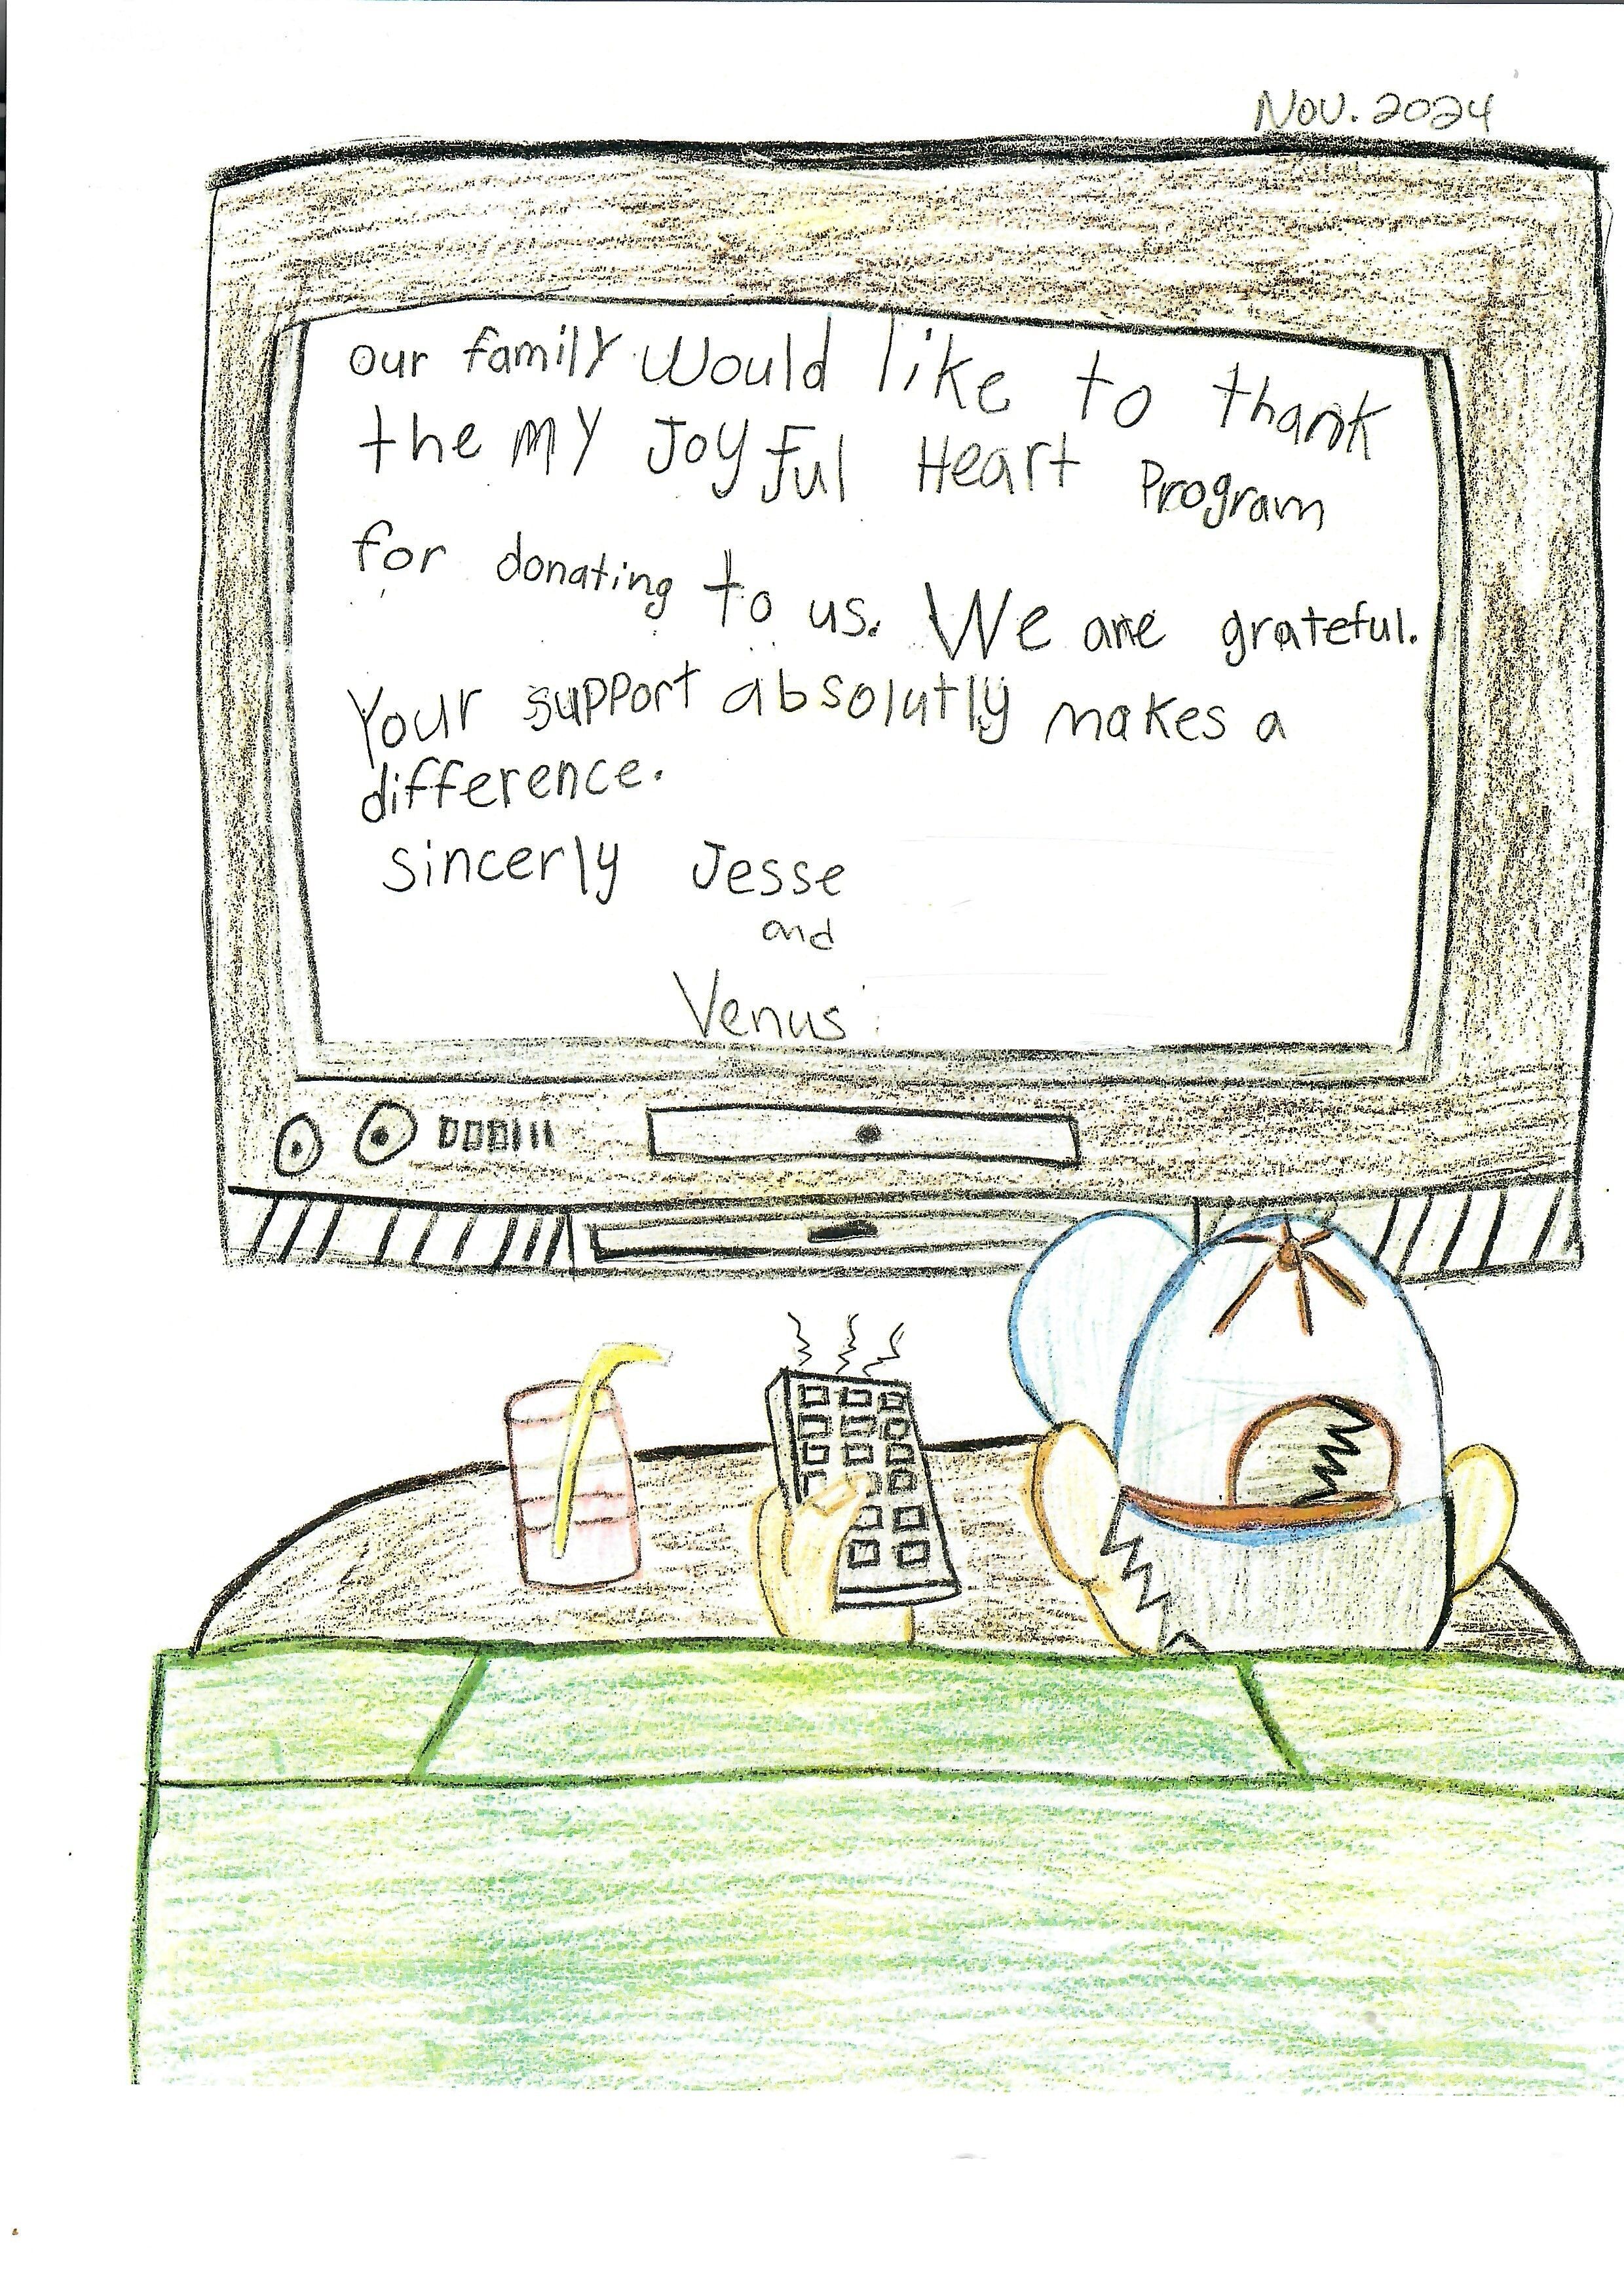 Nov. 2024
our family would like to thank
the my Joyful Heart Program
for donating to us. We are grateful.
Your support absolutly makes a
difference.
sincerly Jesse
and
Venus